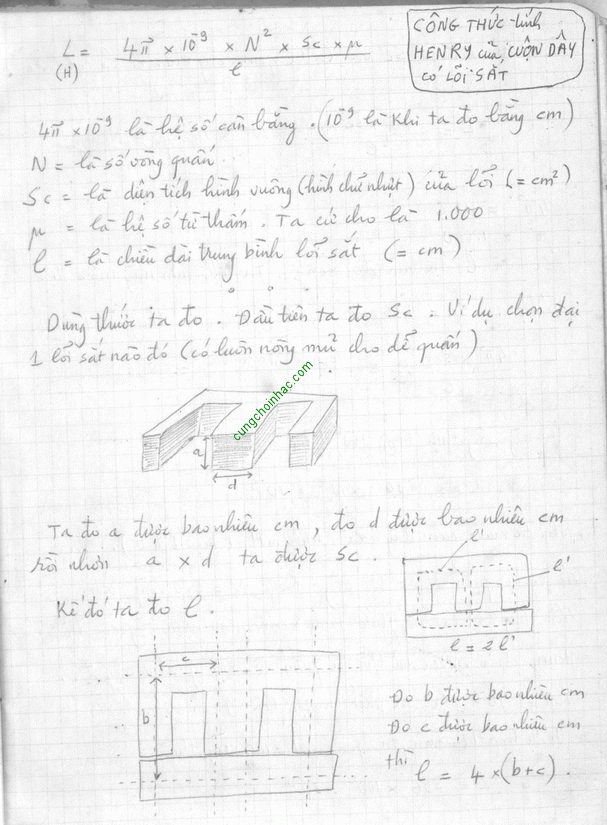 CÔNG THỨC tính
HENRY của CUỘN DÂY
có LÕI SẮT
L = 4π × 10⁻⁹ × N² × Sc × µ
(H) l
4π × 10⁻⁹ là hệ số cân bằng. (10⁻⁹ là khi ta đo bằng cm)
N = là số vòng quấn.
Sc = là diện tích hình vuông (hình chữ nhựt) của lõi (= cm²)
µ = là hệ số từ thẩm. Ta cứ cho là 1.000
l = là chiều dài trung bình lõi sắt (= cm)
Dùng thước ta đo. Đầu tiên ta đo Sc. Ví dụ chọn đại
1 lõi sắt nào đó (có luôn nòng mũ cho dễ quấn)
cungchoinhac.com
a
d
Ta đo a được bao nhiêu cm, đo d được bao nhiêu cm
rồi nhơn a × d ta được Sc.
Kế đó ta đo l.
l'
l'
l = 2l'
c
b
Đo b được bao nhiêu cm
Đo c được bao nhiêu cm
thì l = 4 × (b+c).